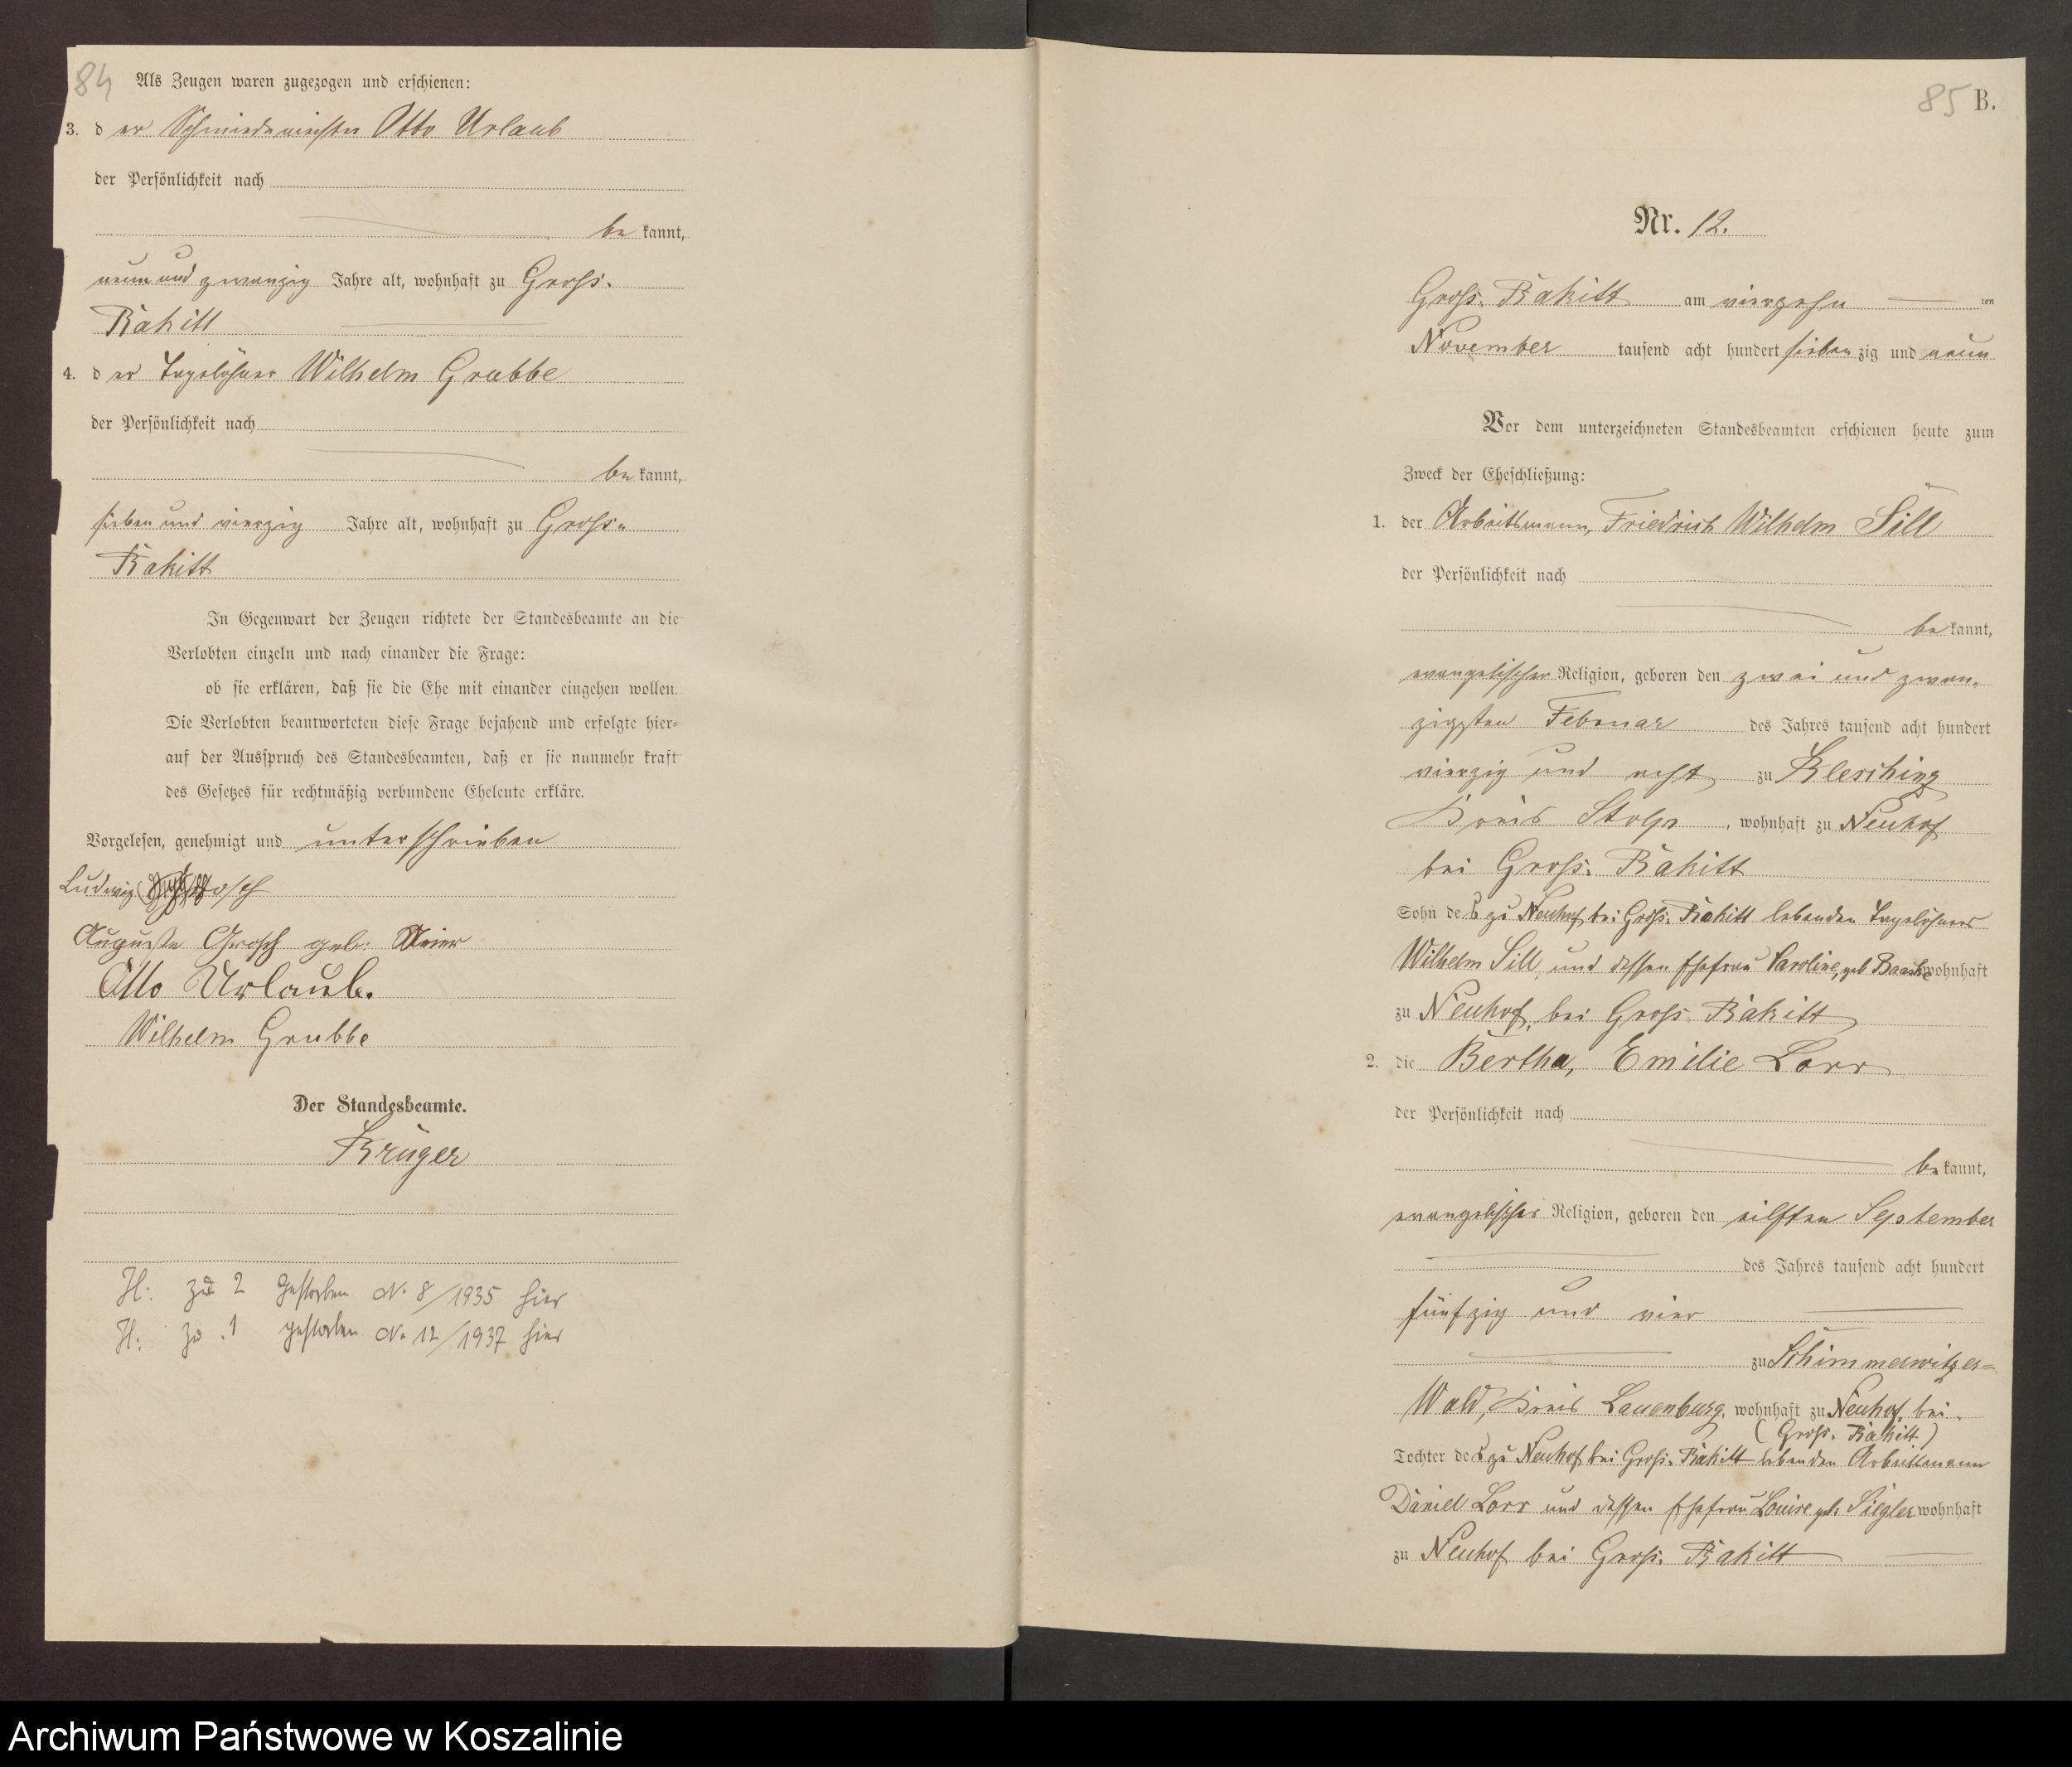 84
Als Zeugen waren zugezogen und erschienen:
3. d er Schmiedemeister Otto Urlaub
der Persönlichkeit nach
be kannt,
neun und zwanzig Jahre alt, wohnhaft zu Groß-
Rakitt
4. d er Tagelöhner Wilhelm Grubbe
der Persönlichkeit nach
be kannt,
sieben und vierzig Jahre alt, wohnhaft zu Groß-
Rakitt
In Gegenwart der Zeugen richtete der Standesbeamte an die
Verlobten einzeln und nach einander die Frage:
ob sie erklären, daß sie die Ehe mit einander eingehen wollen.
Die Verlobten beantworteten diese Frage bejahend und erfolgte hier-
auf der Ausspruch des Standesbeamten, daß er sie nunmehr kraft
des Gesetzes für rechtmäßig verbundene Eheleute erkläre.
Vorgelesen, genehmigt und unterschrieben
Ludwig Grosch
Auguste Grosch geb: Meier
Otto Urlaub.
Wilhelm Grubbe
Der Standesbeamte.
Krüger
H: zu 2 gestorben No 8/1935 hier
H: zu 1 gestorben No 12/1937 hier
85 B.
Nr. 12.
Groß-Rakitt am vierzehn ten
November tausend acht hundert sieben zig und neun
Vor dem unterzeichneten Standesbeamten erschienen heute zum
Zweck der Eheschließung:
1. der Arbeitsmann, Friedrich Wilhelm Sill
der Persönlichkeit nach
be kannt,
evangelischer Religion, geboren den zwei und zwan-
zigsten Februar des Jahres tausend acht hundert
vierzig und acht zu Kleschinz
Kreis Stolp, wohnhaft zu Neuhof
bei Groß-Rakitt
Sohn des zu Neuhof bei Groß-Rakitt lebenden Tagelöhners
Wilhelm Sill und dessen Ehefrau Caroline, geb Baaske wohnhaft
zu Neuhof, bei Groß Rakitt
2. die Bertha, Emilie Lorr
der Persönlichkeit nach
be kannt,
evangelischer Religion, geboren den eilften September
des Jahres tausend acht hundert
fünfzig und vier
zu Schimmerwitzer-
Wald, Kreis Lauenburg, wohnhaft zu Neuhof, bei
(Groß-Rakitt)
Tochter des zu Neuhof bei Groß-Rakitt lebenden Arbeitsmann
Daniel Lorr und dessen Ehefrau Louise geb. Siegler wohnhaft
zu Neuhof bei Groß-Rakitt
Archiwum Państwowe w Koszalinie